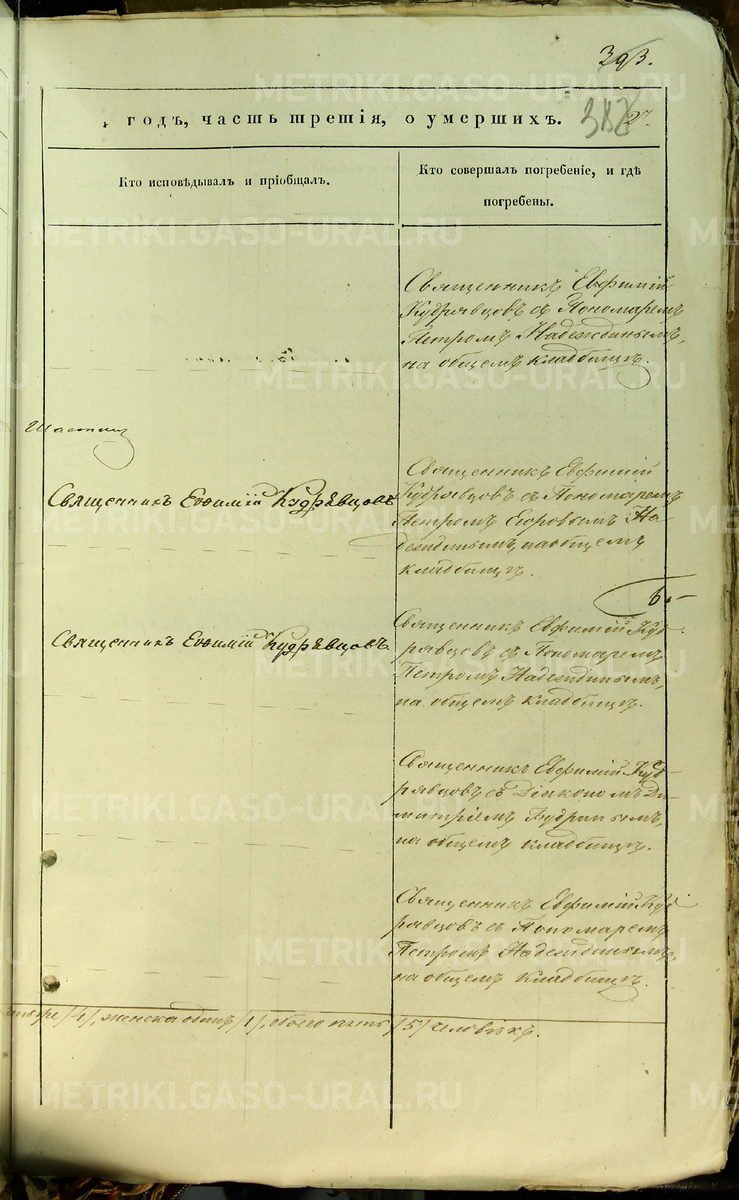 393.
годъ, часть третія, о умершихъ.
387
Кто исповѣдывалъ и пріобщалъ.
Кто совершалъ погребеніе, и гдѣ
погребены.
Священникъ Евфимій
Кудрявцовъ съ Пономаремъ
Петромъ Надеждинымъ,
на общемъ кладбищѣ.
Священникъ Евѳимій Кудрявцовъ
Священникъ Евфимій
Кудрявцовъ съ Пономаремъ
Петромъ Егоровымъ На-
деждинымъ, на общемъ
кладбищѣ.
Священникъ Евѳимій Кудрявцовъ
Священникъ Евфимій Куд-
рявцовъ съ Пономаремъ
Петромъ Надеждинымъ,
на общемъ кладбищѣ.
Священникъ Евфимій Куд-
рявцовъ съ Діакономъ Ди-
митріемъ Кудринымъ,
на общемъ кладбищѣ.
Священникъ Евфимій Куд-
рявцовъ съ Пономаремъ
Петромъ Надеждинымъ,
на общемъ кладбищѣ.
/4/, женска одинъ /1/, обоего пять /5/ человѣкъ.
METRIKI.GASO-URAL.RU